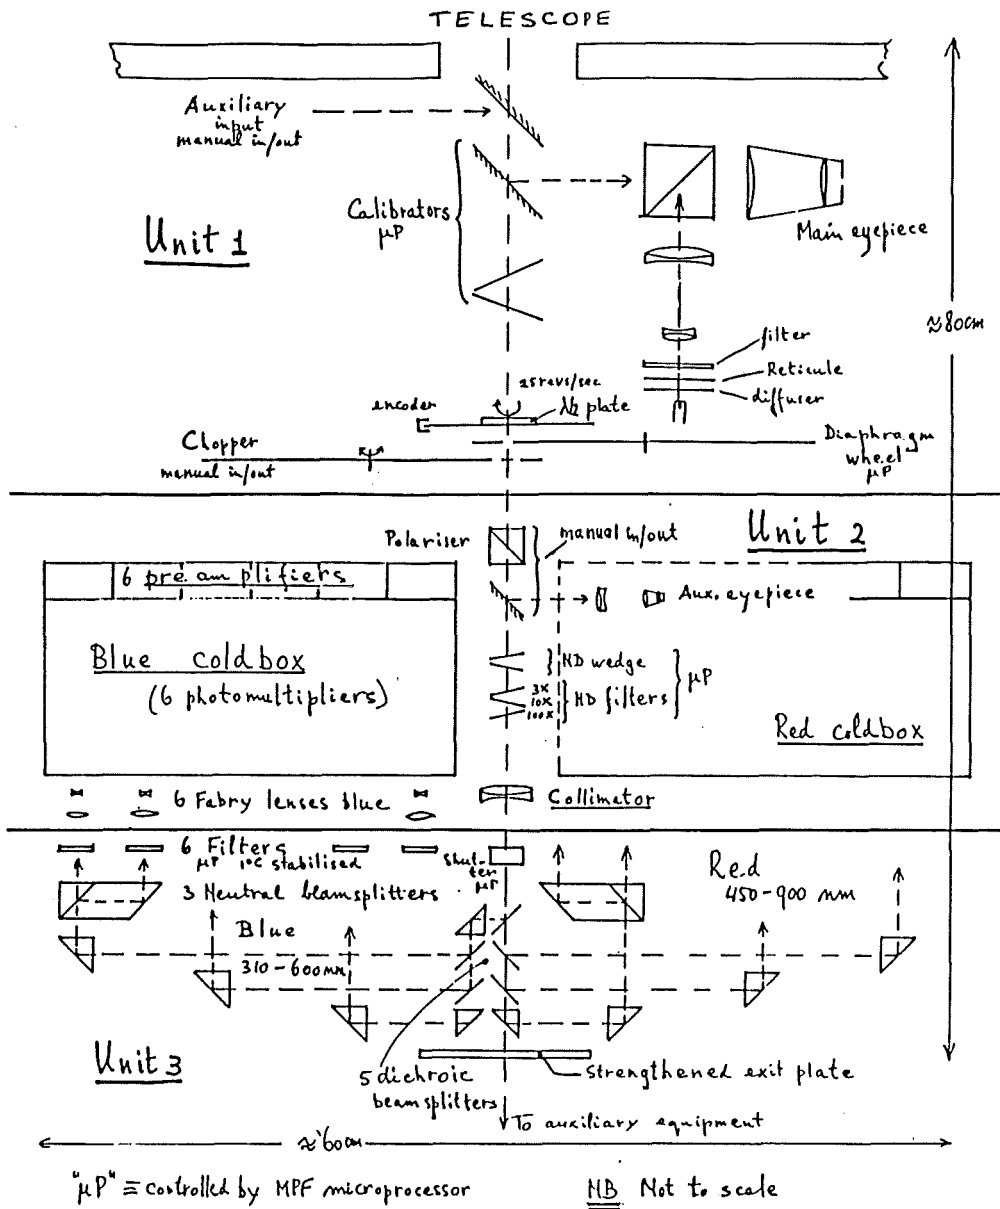 TELESCOPE
Auxiliary
input
manual in/out
Calibrators
μP
Unit 1
Main eyepiece
≈80cm
filter
Reticule
diffuser
25 revs/sec
encoder
λ/2 plate
Chopper
manual in/out
Diaphragm
wheel
μP
Polariser
manual in/out
Unit 2
6 preamplifiers
Aux. eyepiece
Blue coldbox
(6 photomultipliers)
ND wedge
3x
10x
100x
ND filters
μP
Red coldbox
6 Fabry lenses blue
Collimator
6 Filters
μP 1°C stabilised
Shut-
ter
μP
Red
450-900 nm
3 Neutral beamsplitters
Blue
310-600nm
Unit 3
5 dichroic
beamsplitters
Strengthened exit plate
To auxiliary equipment
≈60cm
"μP" ≡ controlled by MPF microprocessor
NB Not to scale